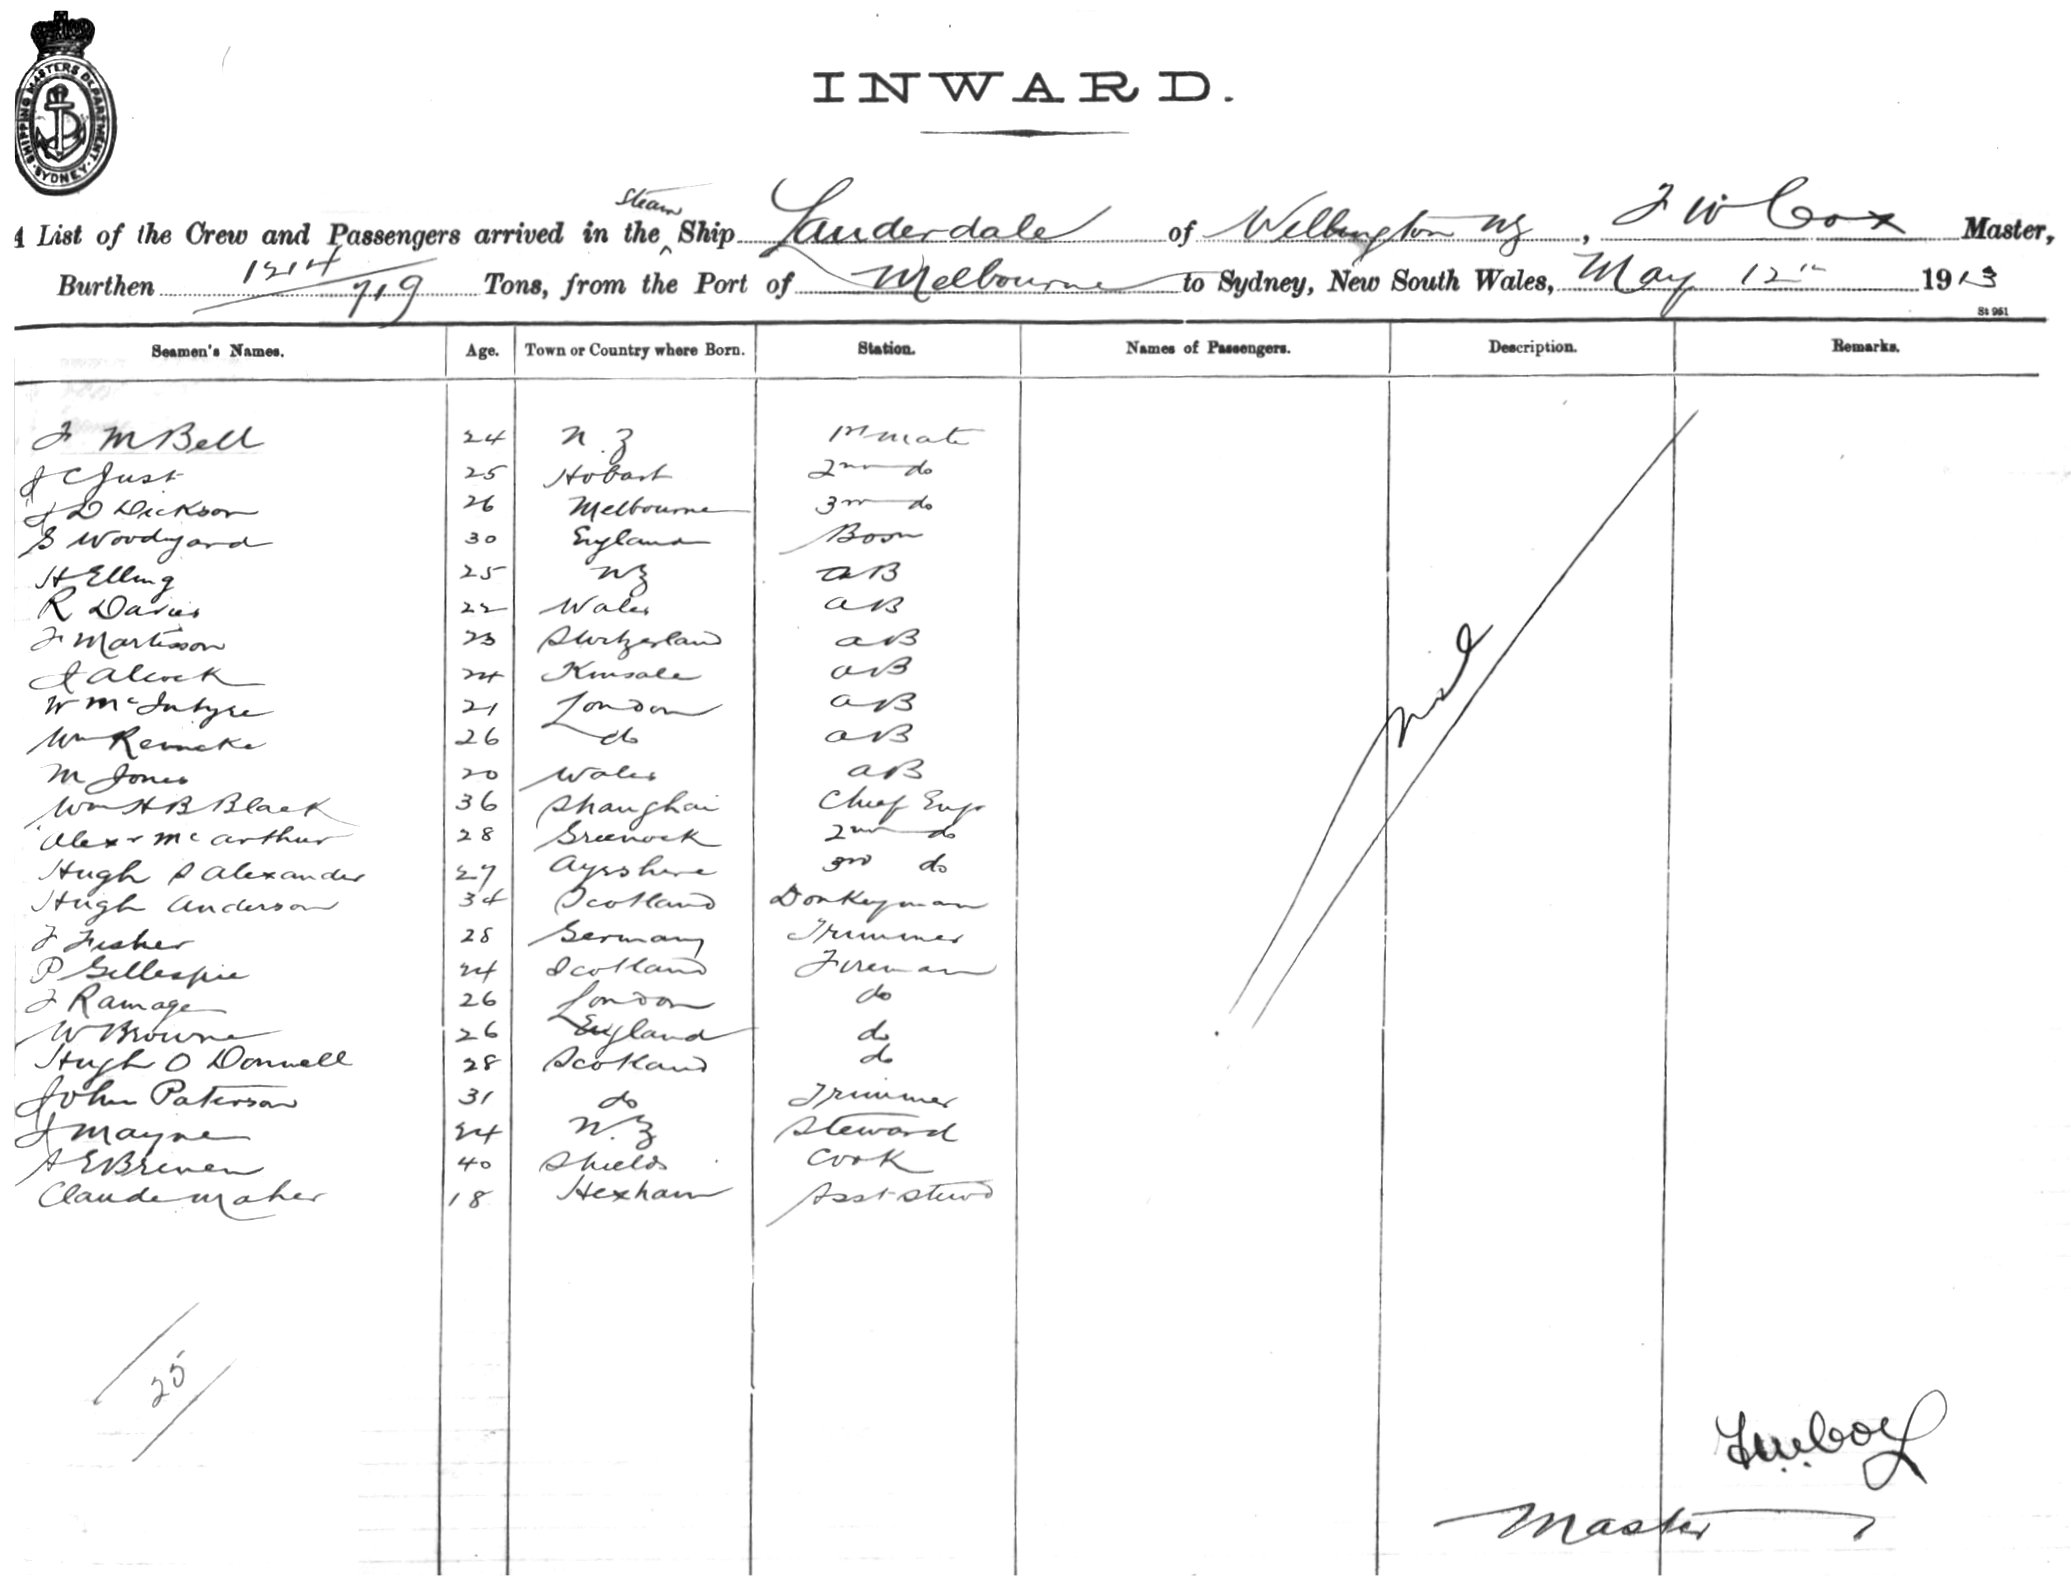 SHIPPING MASTERS DEPARTMENT · SYDNEY ·
INWARD.
List of the Crew and Passengers arrived in the Steam Ship Lauderdale of Wellington NZ, F W Cox Master,
Burthen 719 Tons, from the Port of Melbourne to Sydney, New South Wales, May 12th 1913
St 961
Seamen's Names. Age. Town or Country where Born. Station. Names of Passengers. Description. Remarks.
F M Bell 24 N.Z 1st mate
J C Just 25 Hobart 2nd do
J D Dickson 26 Melbourne 3rd do
S Woodyard 30 England Bosn
H Elling 25 NZ AB
R Davies 22 Wales AB
F Martisson 23 Switzerland AB
J Alcock 24 Kinsale AB
W McIntyre 21 London AB
Wm Reincke 26 do AB
M Jones 20 Wales AB
Wm H B Black 36 Shanghai Chief Engr
Alexr McArthur 28 Greenock 2nd do
Hugh S Alexander 27 Ayrshire 3rd do
Hugh Anderson 34 Scotland Donkeyman
F Fisher 28 Germany Trimmer
P Gillespie 24 Scotland Fireman
J Ramage 26 London do
W Browne 26 England do
Hugh O Donnell 28 Scotland do
John Paterson 31 do Trimmer
J Mayne 24 N.Z Steward
A E Breven 40 Shields Cook
Claude Maher 18 Hexham Asst Stewd
nil
25
F.W. Cox
Master